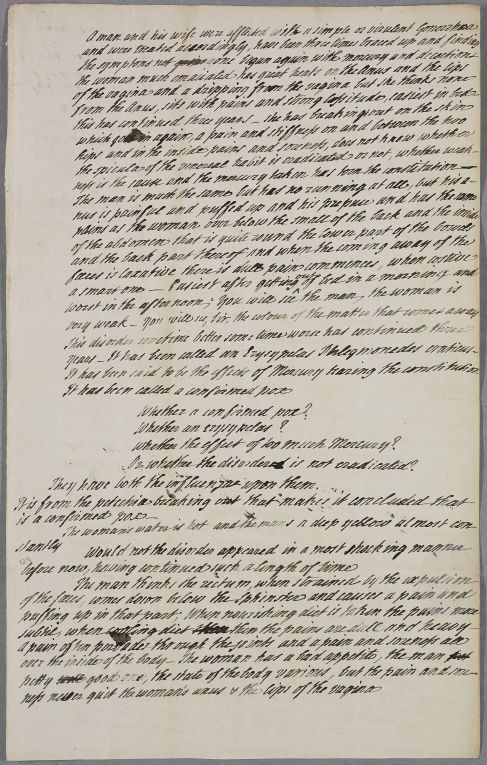 A man and his wife were afflicted with a simple or virulent Gonorrhaea
and were treated accordingly, have been three times braced up and finding
the symptoms not gone begun again with mercury and decoctions
the woman much emaciated has great heats on the Anus and the lips
of the vagina and a dripping from the vagina but she thinks none
from the Anus, sits with pains and strong lassitude, easiest in bed
this has continued three years – she has breakings out on the skin
which goes in again, a pain and stiffness on and between the two
hips and in the inside pains and soreness, does not know whether
the specula of the venereal habit is eradicated or not, whether weak-
ness is the cause and the mercury taken has torn the constitution –
The man is much the same but has no running at all, but his a-
nus is painful and puffed up and his prepuce and has the same
pains as the woman over below the small of the back and the inside
of the abdomen that is quite round the lower part of the bowels
and the back part thereof and when the coming away of the
faeces is laxative there is dull pain commences, when costive
a smart one – Easiest after getting out of bed in a morning and
worst in the afternoon; You will see the man, the woman is
very weak – you will see, Sir, the colour of the matter that comes away
This disorder sometime better some time worse has continued three
years – It has been called an Erysypelas Phlegmonodes erraticus –
It has been said to be the effects of Mercury tearing the constitution
It has been called a confirmed pox
Whether a confirmed pox?
Whether an erysypelas?
Whether the effect of too much Mercury?
Or whether the disorder is not eradicated?
They have both the influenze upon them.
It is from the petechia breaking out that makes it concluded that
is a confirmed pox
The womans water is hot and the mans a deep yellow almost con
stantly
Would not the disorder appeared in a most shocking manner
before now, having continued such a length of time
The man thinks the rectum when strained by the expulsion
of the faeces, comes down below the Sphincter and causes a pain and
puffing up in that part; When nourishing diet is taken the pains more
subtile, when cooling diet then the pains are dull and heavy
a pain often pervades through the joints and a pain and soreness all
over the inside of the body – The woman has a bad appetite, the man
petty good one, the state of the body various, but the pain and sore
ness never quit the womans anus & the lips of the vagina